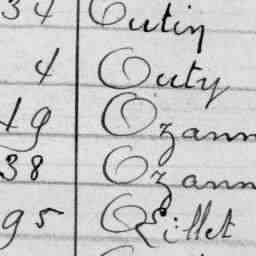 34 Outin
4 Outy
49 Ozann
38 Ozann
95 Œillet